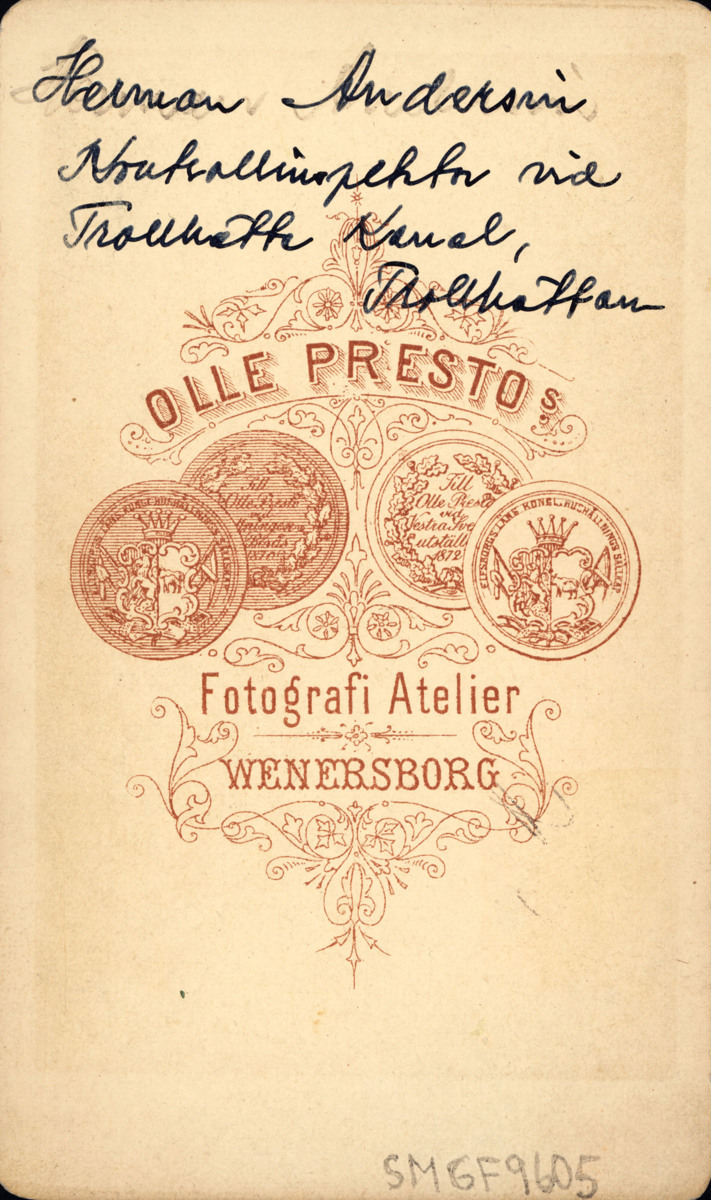 Herman Andersin
Kontrollinspektor vid
Trollhätte Kanal,
Trollhättan
OLLE PRESTOS
ELFSBORGS LÄNS KONGL. HUSHÅLLNINGS SÄLLSK.
Till
Olle Presto
1870
Till
Olle Presto
vid
Vestra Sve
E utställ
1872
ELFSBORGS LÄNS KONGL. HUSHÅLLNINGS SÄLLSK.
Fotografi Atelier
WENERSBORG
SMGF9605